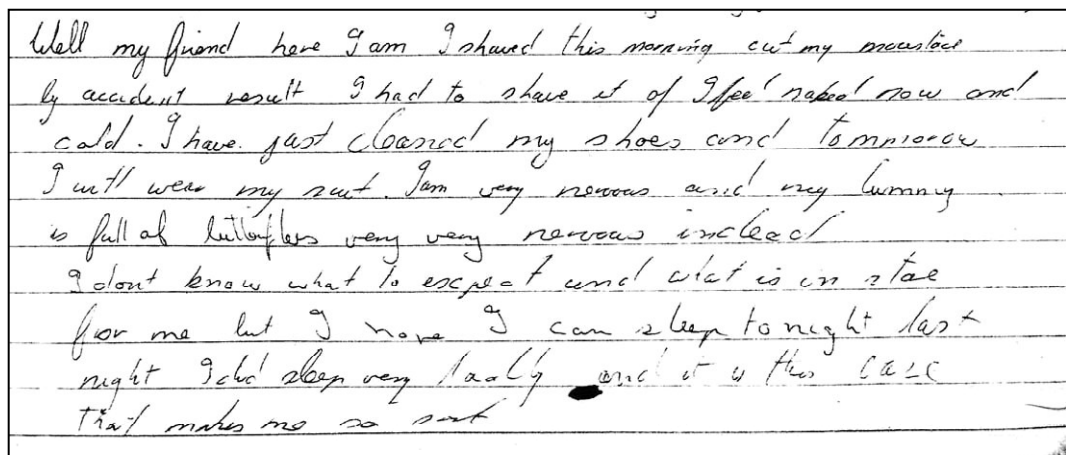 Well my friend here I am I shaved this morning cut my moustace
by accident result I had to shave it of I feel naked now and
cold. I have just cleaned my shoes and tommorow
I will wear my suit. I am very nervous and my tummy
is full of butterflies very very nervous indeed
I dont know what to expect and what is in stoe
for me but I hope I can sleep tonight last
night I did sleep very badly and it is this case
that makes me so